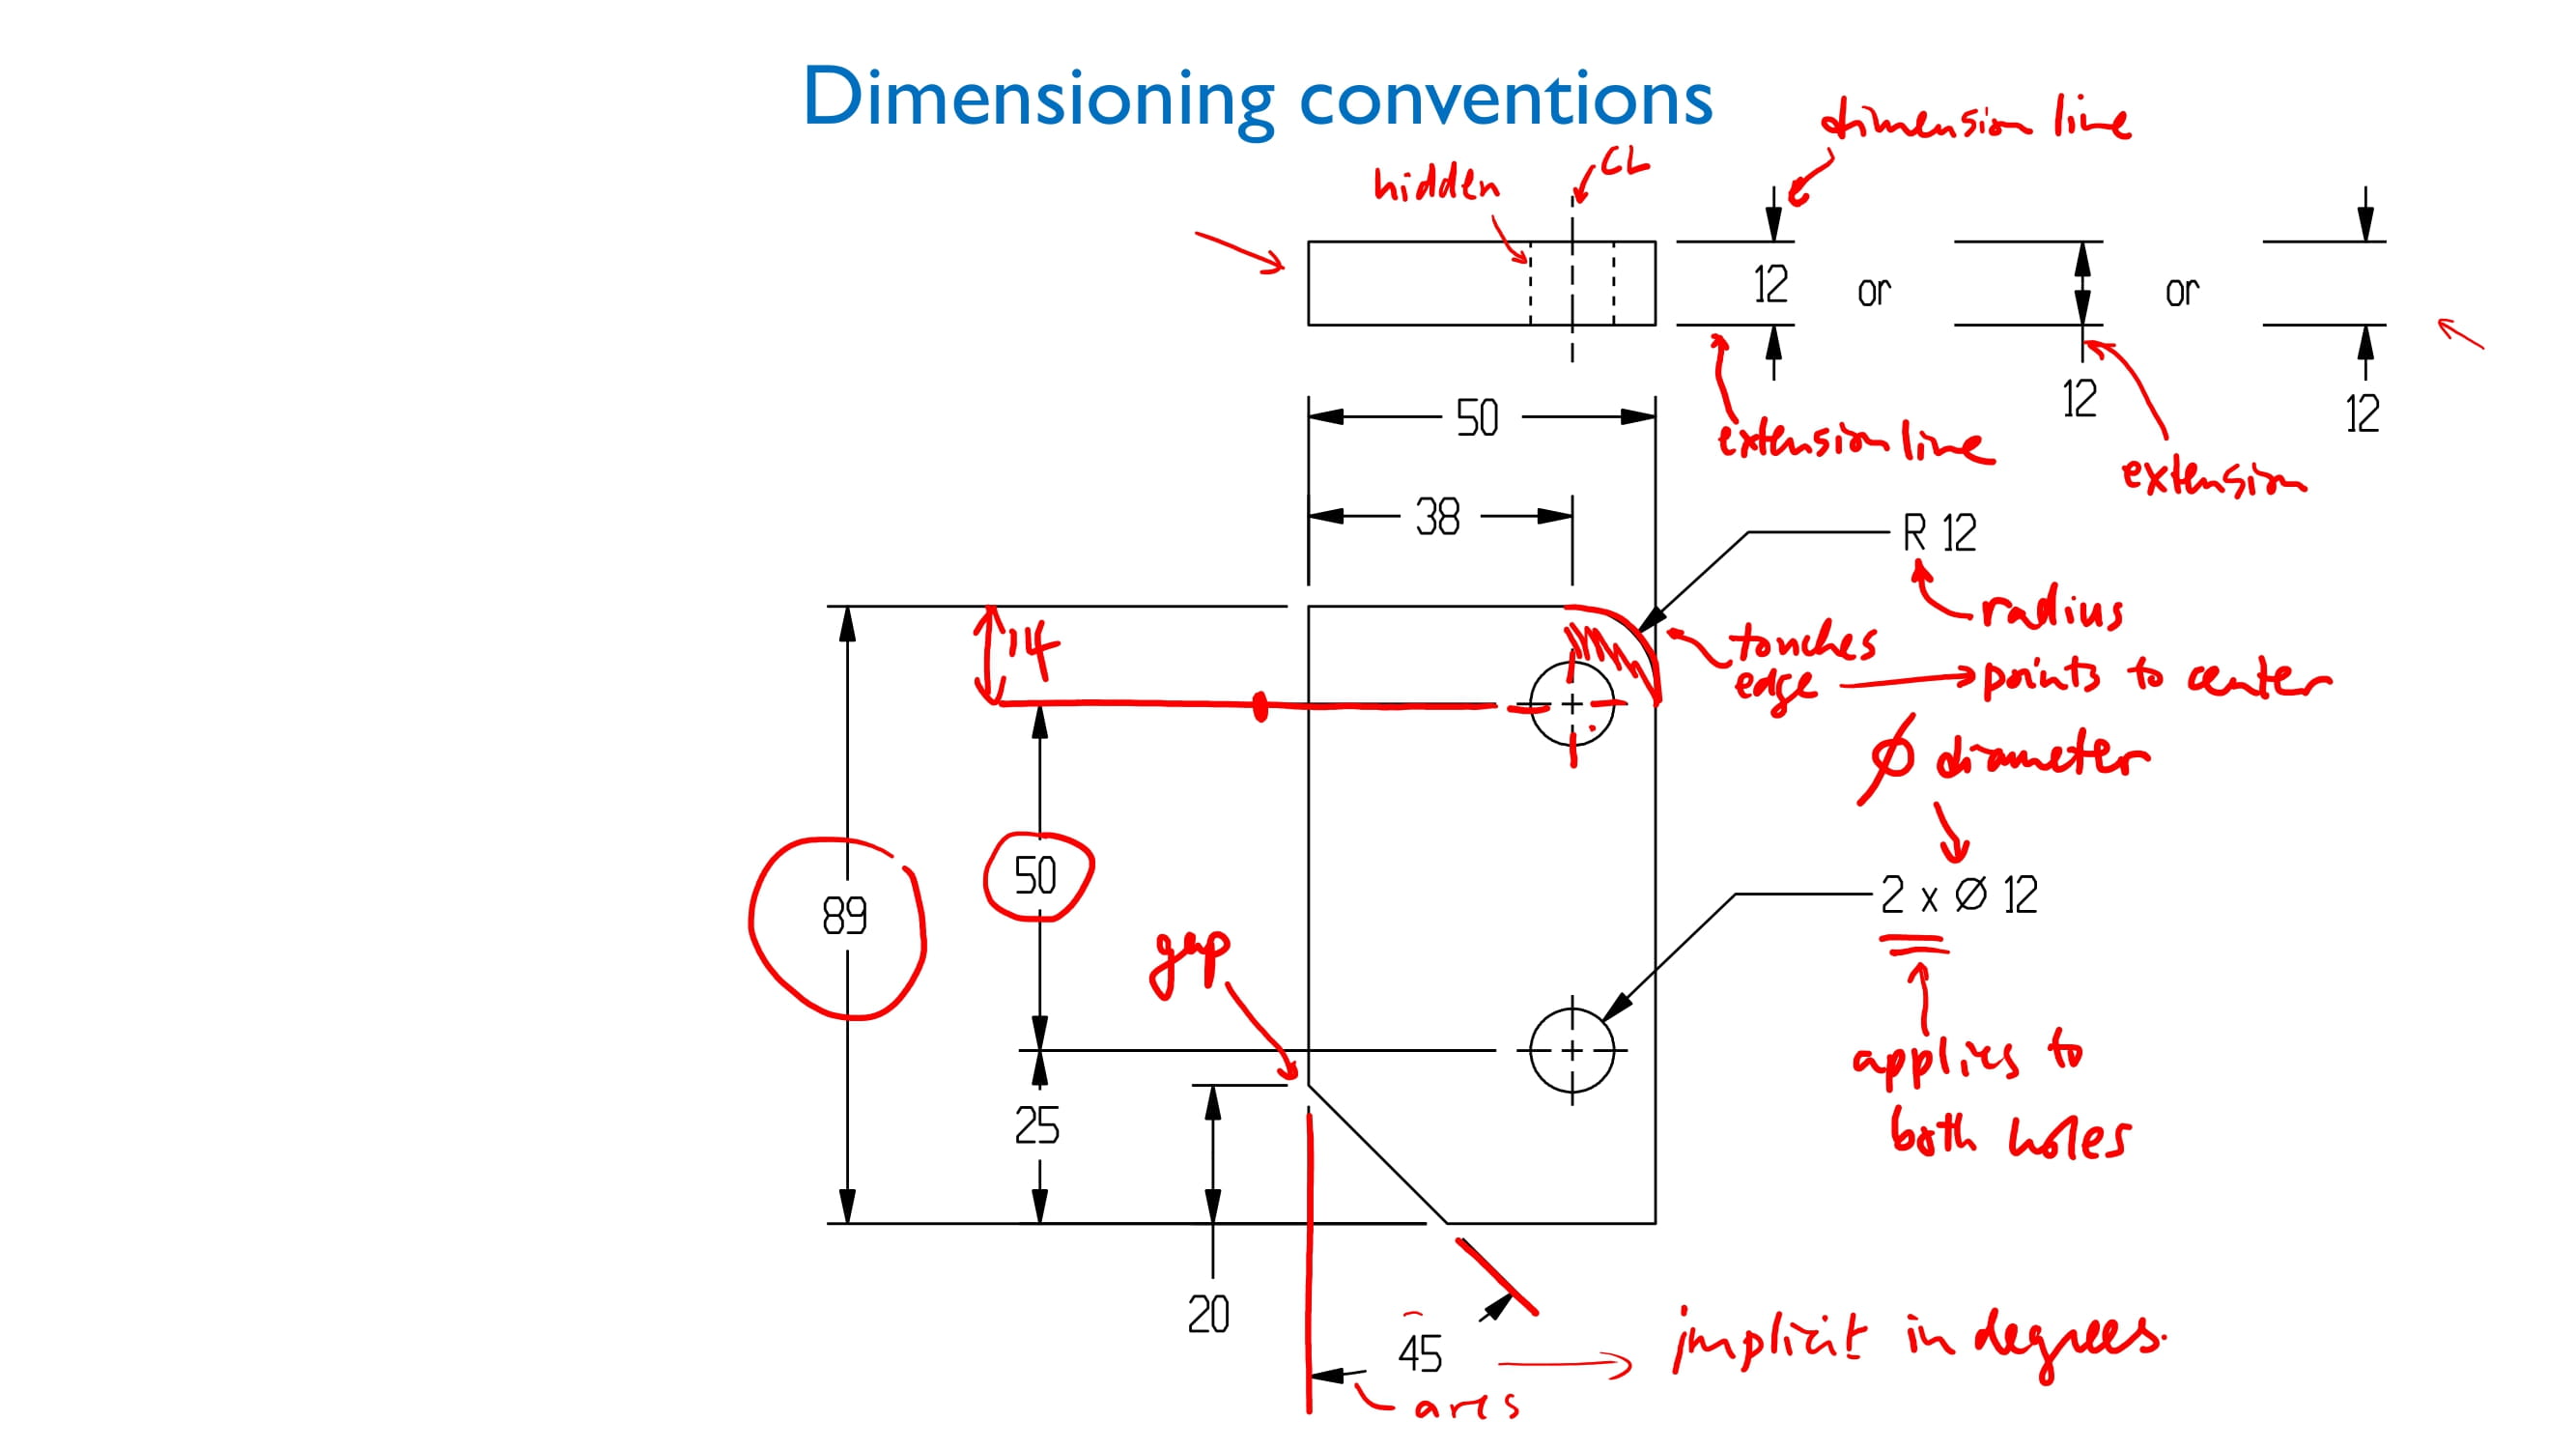 Dimensioning conventions
dimension line
hidden
CL
12
or
12
or
12
50
extension line
extension
38
R 12
radius
14
touches
edge
points to center
Ø diameter
50
89
2 x Ø 12
gap
applies to
both holes
25
20
45
implicit in degrees.
arcs